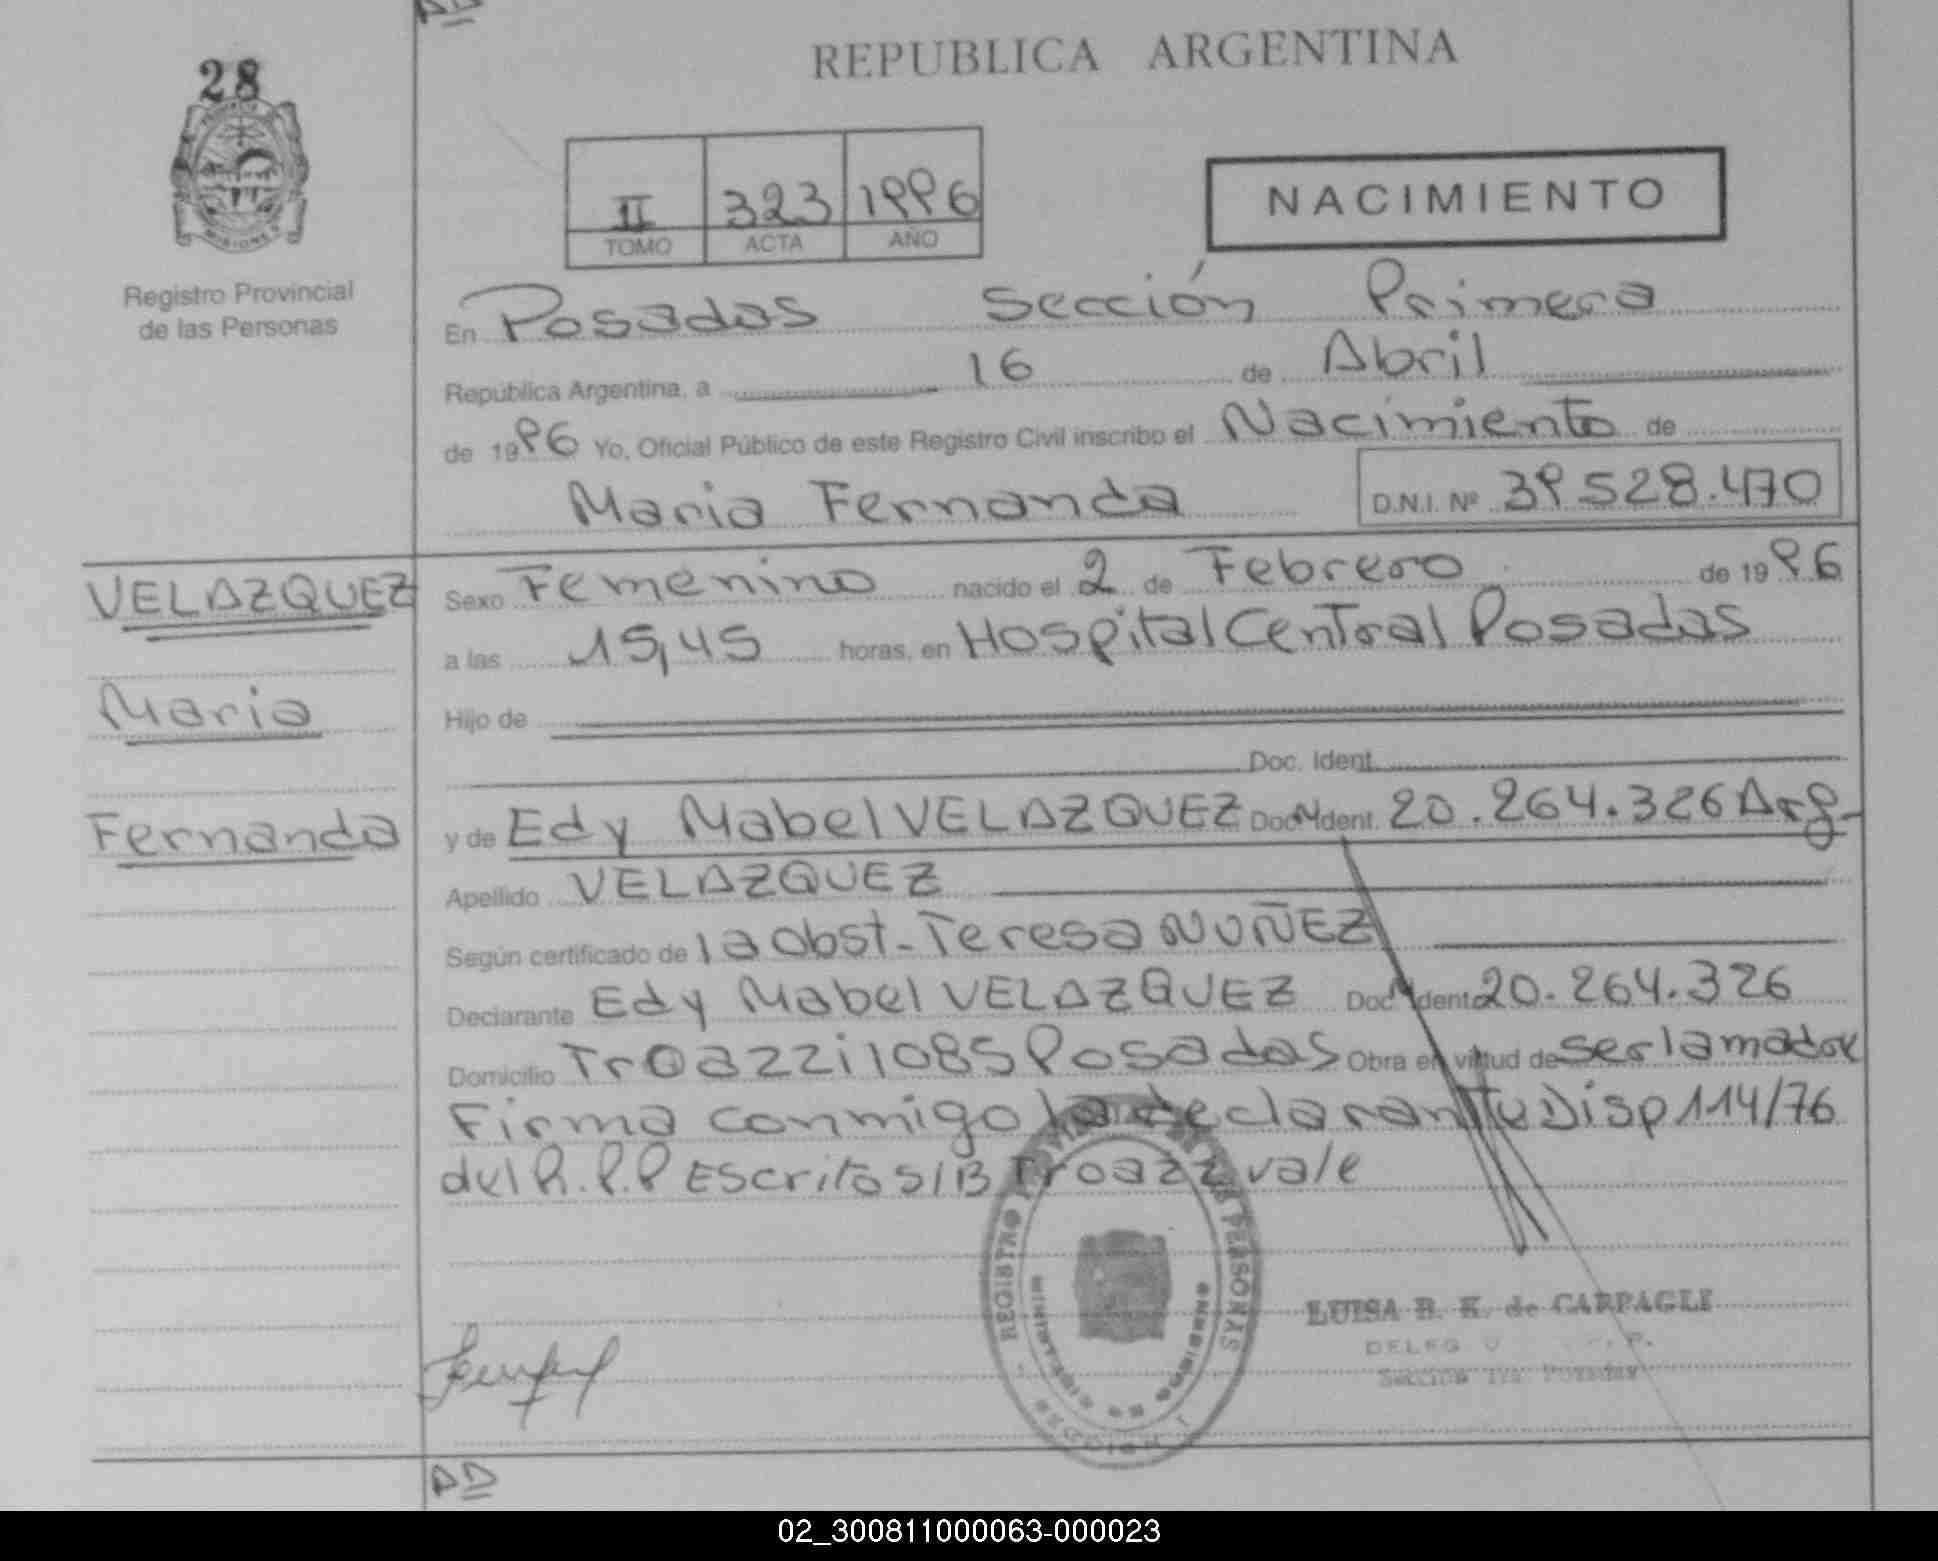 AD
REPUBLICA ARGENTINA
28
PROVINCIA
MISIONES
Registro Provincial
de las Personas
II 323 1996
TOMO ACTA AÑO
NACIMIENTO
En Posadas Sección Primera
República Argentina, a 16 de Abril
de 1996 Yo, Oficial Público de este Registro Civil inscribo el Nacimiento de
Maria Fernanda D.N.I. Nº 39.528.470
VELAZQUEZ
Maria
Fernanda
Sexo Femenino nacido el 2 de Febrero de 1996
a las 15,45 horas, en Hospital Central Posadas
Hijo de
Doc. Ident.
y de Edy Mabel VELAZQUEZ Doc. Ident. 20.264.326 Arg.
Apellido VELAZQUEZ
Según certificado de la Obst. Teresa NUÑEZ
Declarante Edy Mabel VELAZQUEZ Doc. Ident. 20.264.326
Domicilio Troazzi 1085 Posadas Obra en virtud de ser la madre
Firma conmigo la declarante Disp 114/76
del R.P.P Escrito S/B Troazzi vale
REGISTRO PROVINCIAL DE LAS PERSONAS
SECCION 1
LUISA R. K. de CARPAGLI
DELEG
Sección 1ra Posadas
AD
02_300811000063-000023